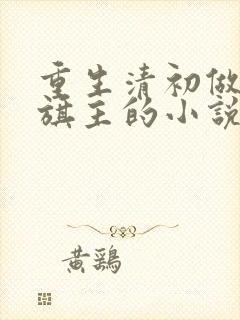 重生清初做
旗主的小說
黃鷄